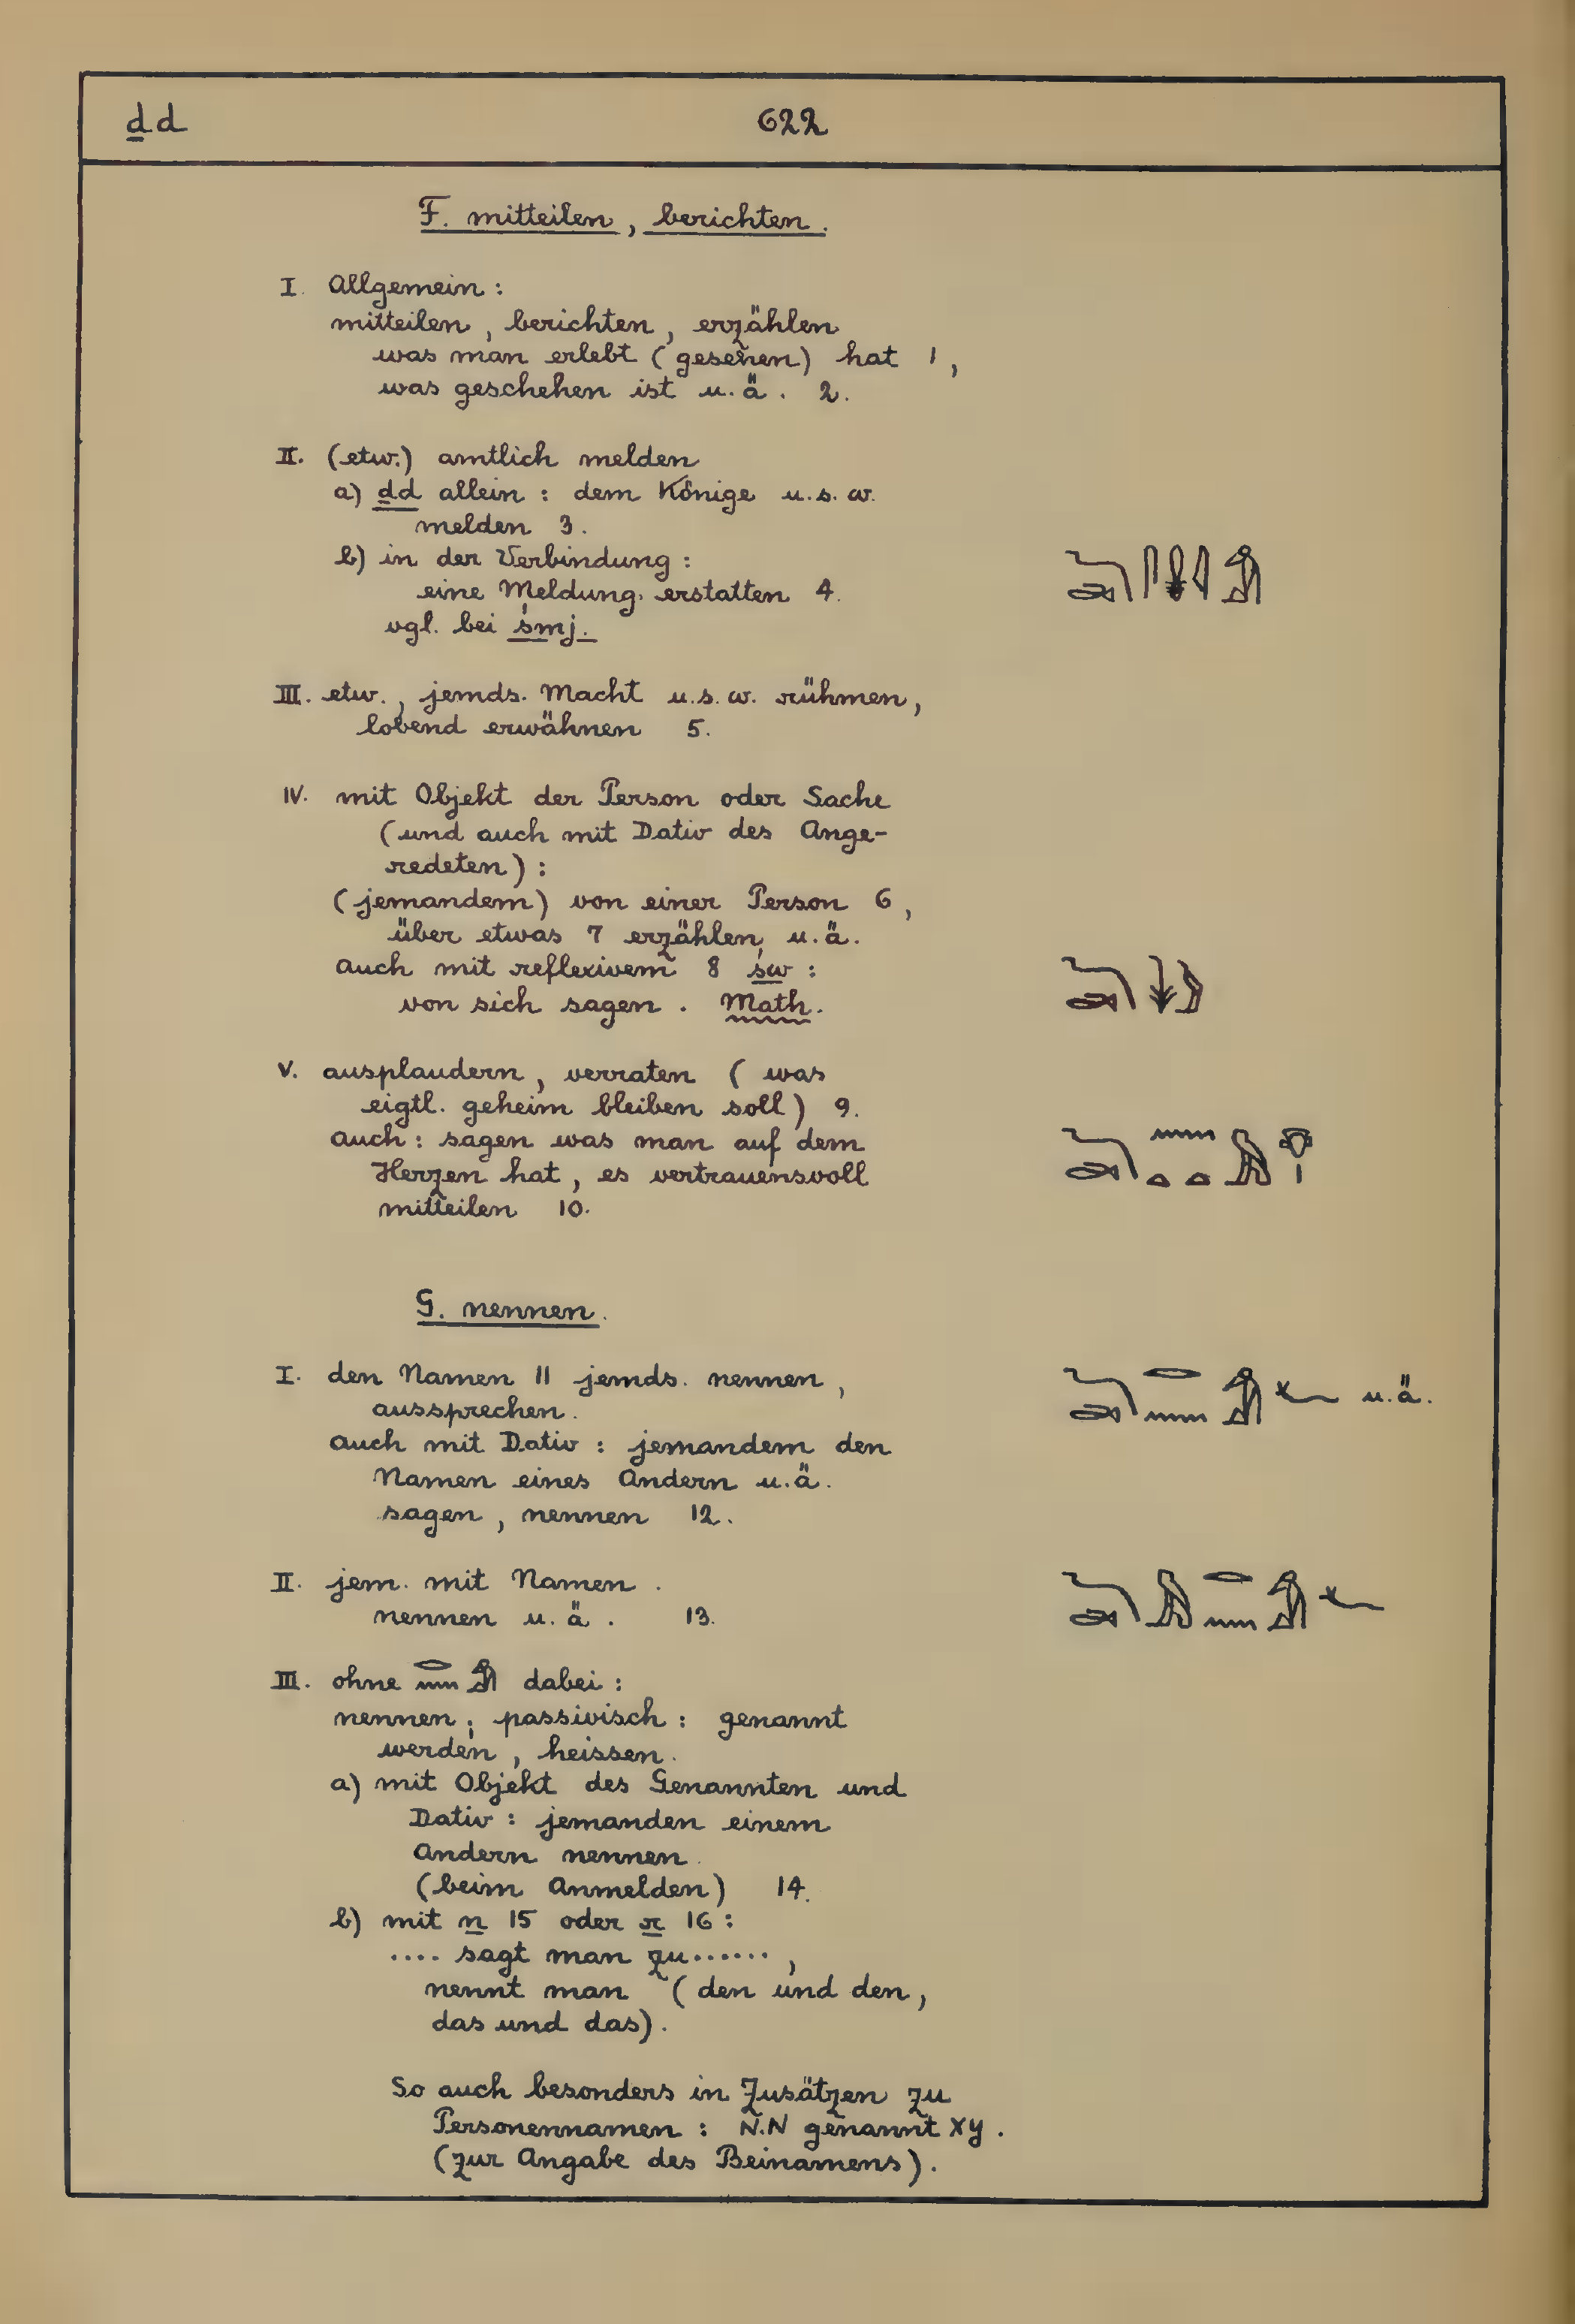 ḏd 622
F. mitteilen, berichten.
I. Allgemein:
mitteilen, berichten, erzählen
was man erlebt (gesehen) hat 1,
was geschehen ist u.ä. 2.
II. (etw.) amtlich melden
a) ḏd allein: dem Könige u.s.w.
melden 3.
b) in der Verbindung:
eine Meldung erstatten 4.
vgl. bei śmj.
III. etw., jemds. Macht u.s.w. rühmen,
lobend erwähnen 5.
IV. mit Objekt der Person oder Sache
(und auch mit Dativ des Ange-
redeten):
(jemandem) von einer Person 6,
über etwas 7 erzählen, u.ä.
auch mit reflexivem 8 św:
von sich sagen. Math.
V. ausplaudern, verraten (was
eigtl. geheim bleiben soll) 9.
auch: sagen was man auf dem
Herzen hat, es vertrauensvoll
mitteilen 10.
G. nennen.
I. den Namen 11 jemds. nennen,
aussprechen. u.ä.
auch mit Dativ: jemandem den
Namen eines Andern u.ä.
sagen, nennen 12.
II. jem. mit Namen.
nennen u.ä. 13.
III. ohne dabei:
nennen; passivisch: genannt
werden, heissen.
a) mit Objekt des Genannten und
Dativ: jemanden einem
Andern nennen.
(beim Anmelden) 14.
b) mit n 15 oder r 16:
.... sagt man zu......,
nennt man (den und den,
das und das).
So auch besonders in Zusätzen zu
Personennamen: N.N genannt XY.
(zur Angabe des Beinamens).